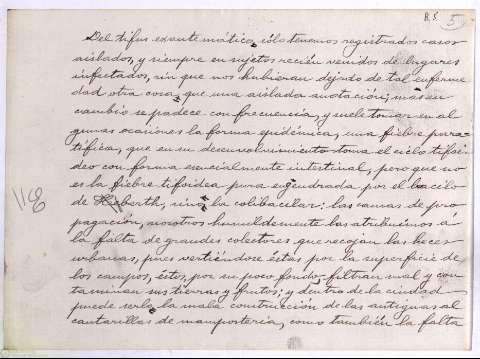 R.S 5
Del tifus exantemático, sólo tenemos registrados casos
aislados, y siempre en sujetos recién venidos de lugares
infectados, sin que nos hubieran dejado de tal enferme
dad otra cosa, que una aislada anotación; más en
cambio se padece con frecuencia, y suele tomar en al
gunas ocasiones la forma epidémica, una fiebre para-
tífica, que en su desenvolvimiento toma el ciclo tifoi
deo con forma esencialmente intestinal, pero que no
es la fiebre tifoidea pura engendrada por el bacilo
de Heberth, sino la colibacilar; las causas de pro
pagación, nosotros humildemente las atribuimos á
la falta de grandes colectores que recojan las heces
urbanas, pues vertiéndose éstas por la superficie de
los campos, éstos, por su poco fondo, filtran mal y con
taminan sus tierras y frutos; y dentro de la ciudad
puede serlo la mala construcción de las antiguas al
cantarillas de mampostería, como también la falta